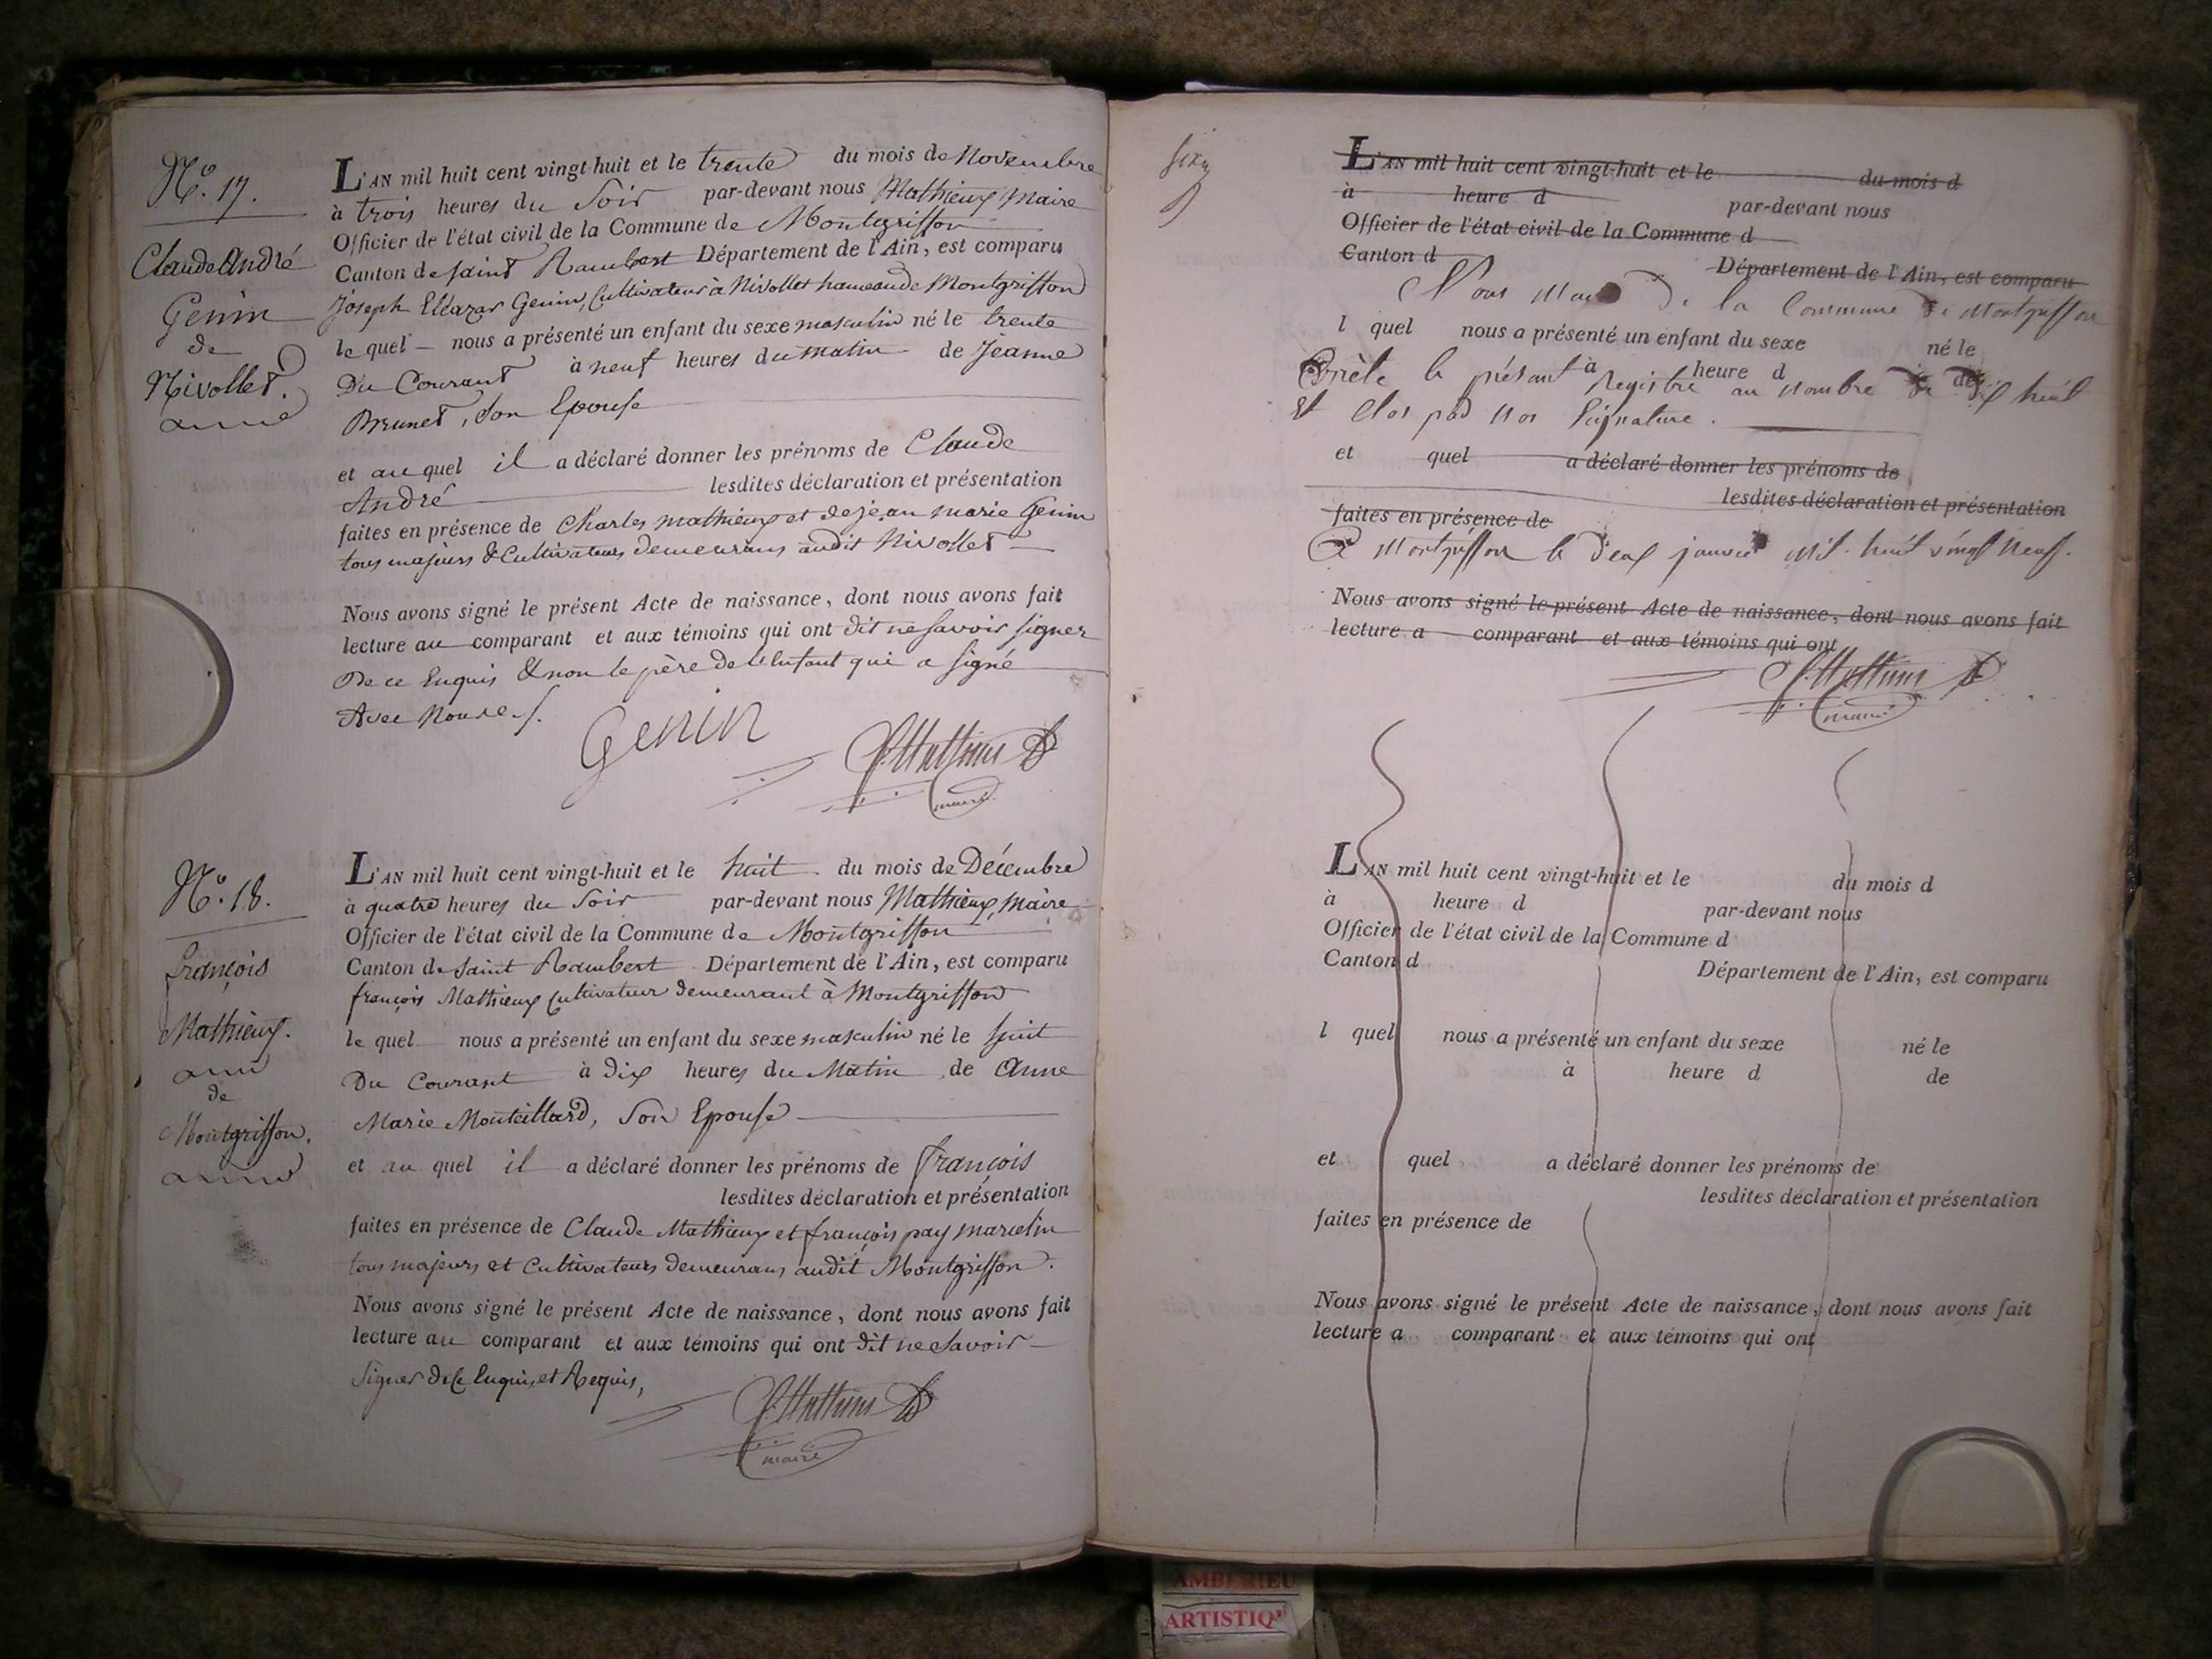 N.º 17.
Claude André
Genin
de
Nivollet.
L'AN mil huit cent vingt-huit et le trente du mois de Novembre
à trois heures du Soir par-devant nous Mathieux Maire
Officier de l'état civil de la Commune de Montgriffon
Canton de saint Rambert Département de l'Ain, est comparu
Joseph Eléazar Genin, Cultivateur à Nivollet hameau de Montgriffon
le quel nous a présenté un enfant du sexe masculin né le trente
Du Courant à neuf heures du matin de Jeanne
Brunet, son Epouse
et au quel il a déclaré donner les prénoms de Claude
André lesdites déclaration et présentation
faites en présence de Charles mathieux et de jean marie Genin
tous majeurs & Cultivateurs demeurans audit Nivollet
Nous avons signé le présent Acte de naissance, dont nous avons fait
lecture au comparant et aux témoins qui ont dit ne savoir signer
De ce Enquis & non le père de l'Enfant qui a signé
Avec Nous
Genin
Mathieux
maire
N.º 18.
françois
Mathieux.
de
Montgriffon.
L'AN mil huit cent vingt-huit et le huit du mois de Décembre
à quatre heures du Soir par-devant nous Mathieux, Maire
Officier de l'état civil de la Commune de Montgriffon
Canton de saint Rambert Département de l'Ain, est comparu
françois Mathieux Cultivateur demeurant à Montgriffon
le quel nous a présenté un enfant du sexe masculin né le huit
Du Courant à dix heures du Matin de Anne
Marie Monteillard, Son Epouse
et au quel il a déclaré donner les prénoms de françois
lesdites déclaration et présentation
faites en présence de Claude Mathieux et françois pay marcelin
tous majeurs et Cultivateurs demeurans audit Montgriffon.
Nous avons signé le présent Acte de naissance, dont nous avons fait
lecture au comparant et aux témoins qui ont dit ne savoir
signer de ce Enquis et Requis,
Mathieux
maire
L'AN mil huit cent vingt-huit et le du mois d
à heure d par-devant nous
Officier de l'état civil de la Commune d
Canton d Département de l'Ain, est comparu
Nous Maire de la Commune de Montgriffon
l quel nous a présenté un enfant du sexe né le
à heure d de
le présent Registre au nombre de dix huit
Et Clos par nos Signature.
et quel a déclaré donner les prénoms de
lesdites déclaration et présentation
faites en présence de
A Montgriffon le deux janvier mil huit vingt neuf.
Nous avons signé le présent Acte de naissance, dont nous avons fait
lecture a comparant et aux témoins qui ont
Mathieux
maire
L'AN mil huit cent vingt-huit et le du mois d
à heure d par-devant nous
Officier de l'état civil de la Commune d
Canton d Département de l'Ain, est comparu
l quel nous a présenté un enfant du sexe né le
à heure d de
et quel a déclaré donner les prénoms de
lesdites déclaration et présentation
faites en présence de
Nous avons signé le présent Acte de naissance, dont nous avons fait
lecture a comparant et aux témoins qui ont
AMBERIEU
ARTISTIQ